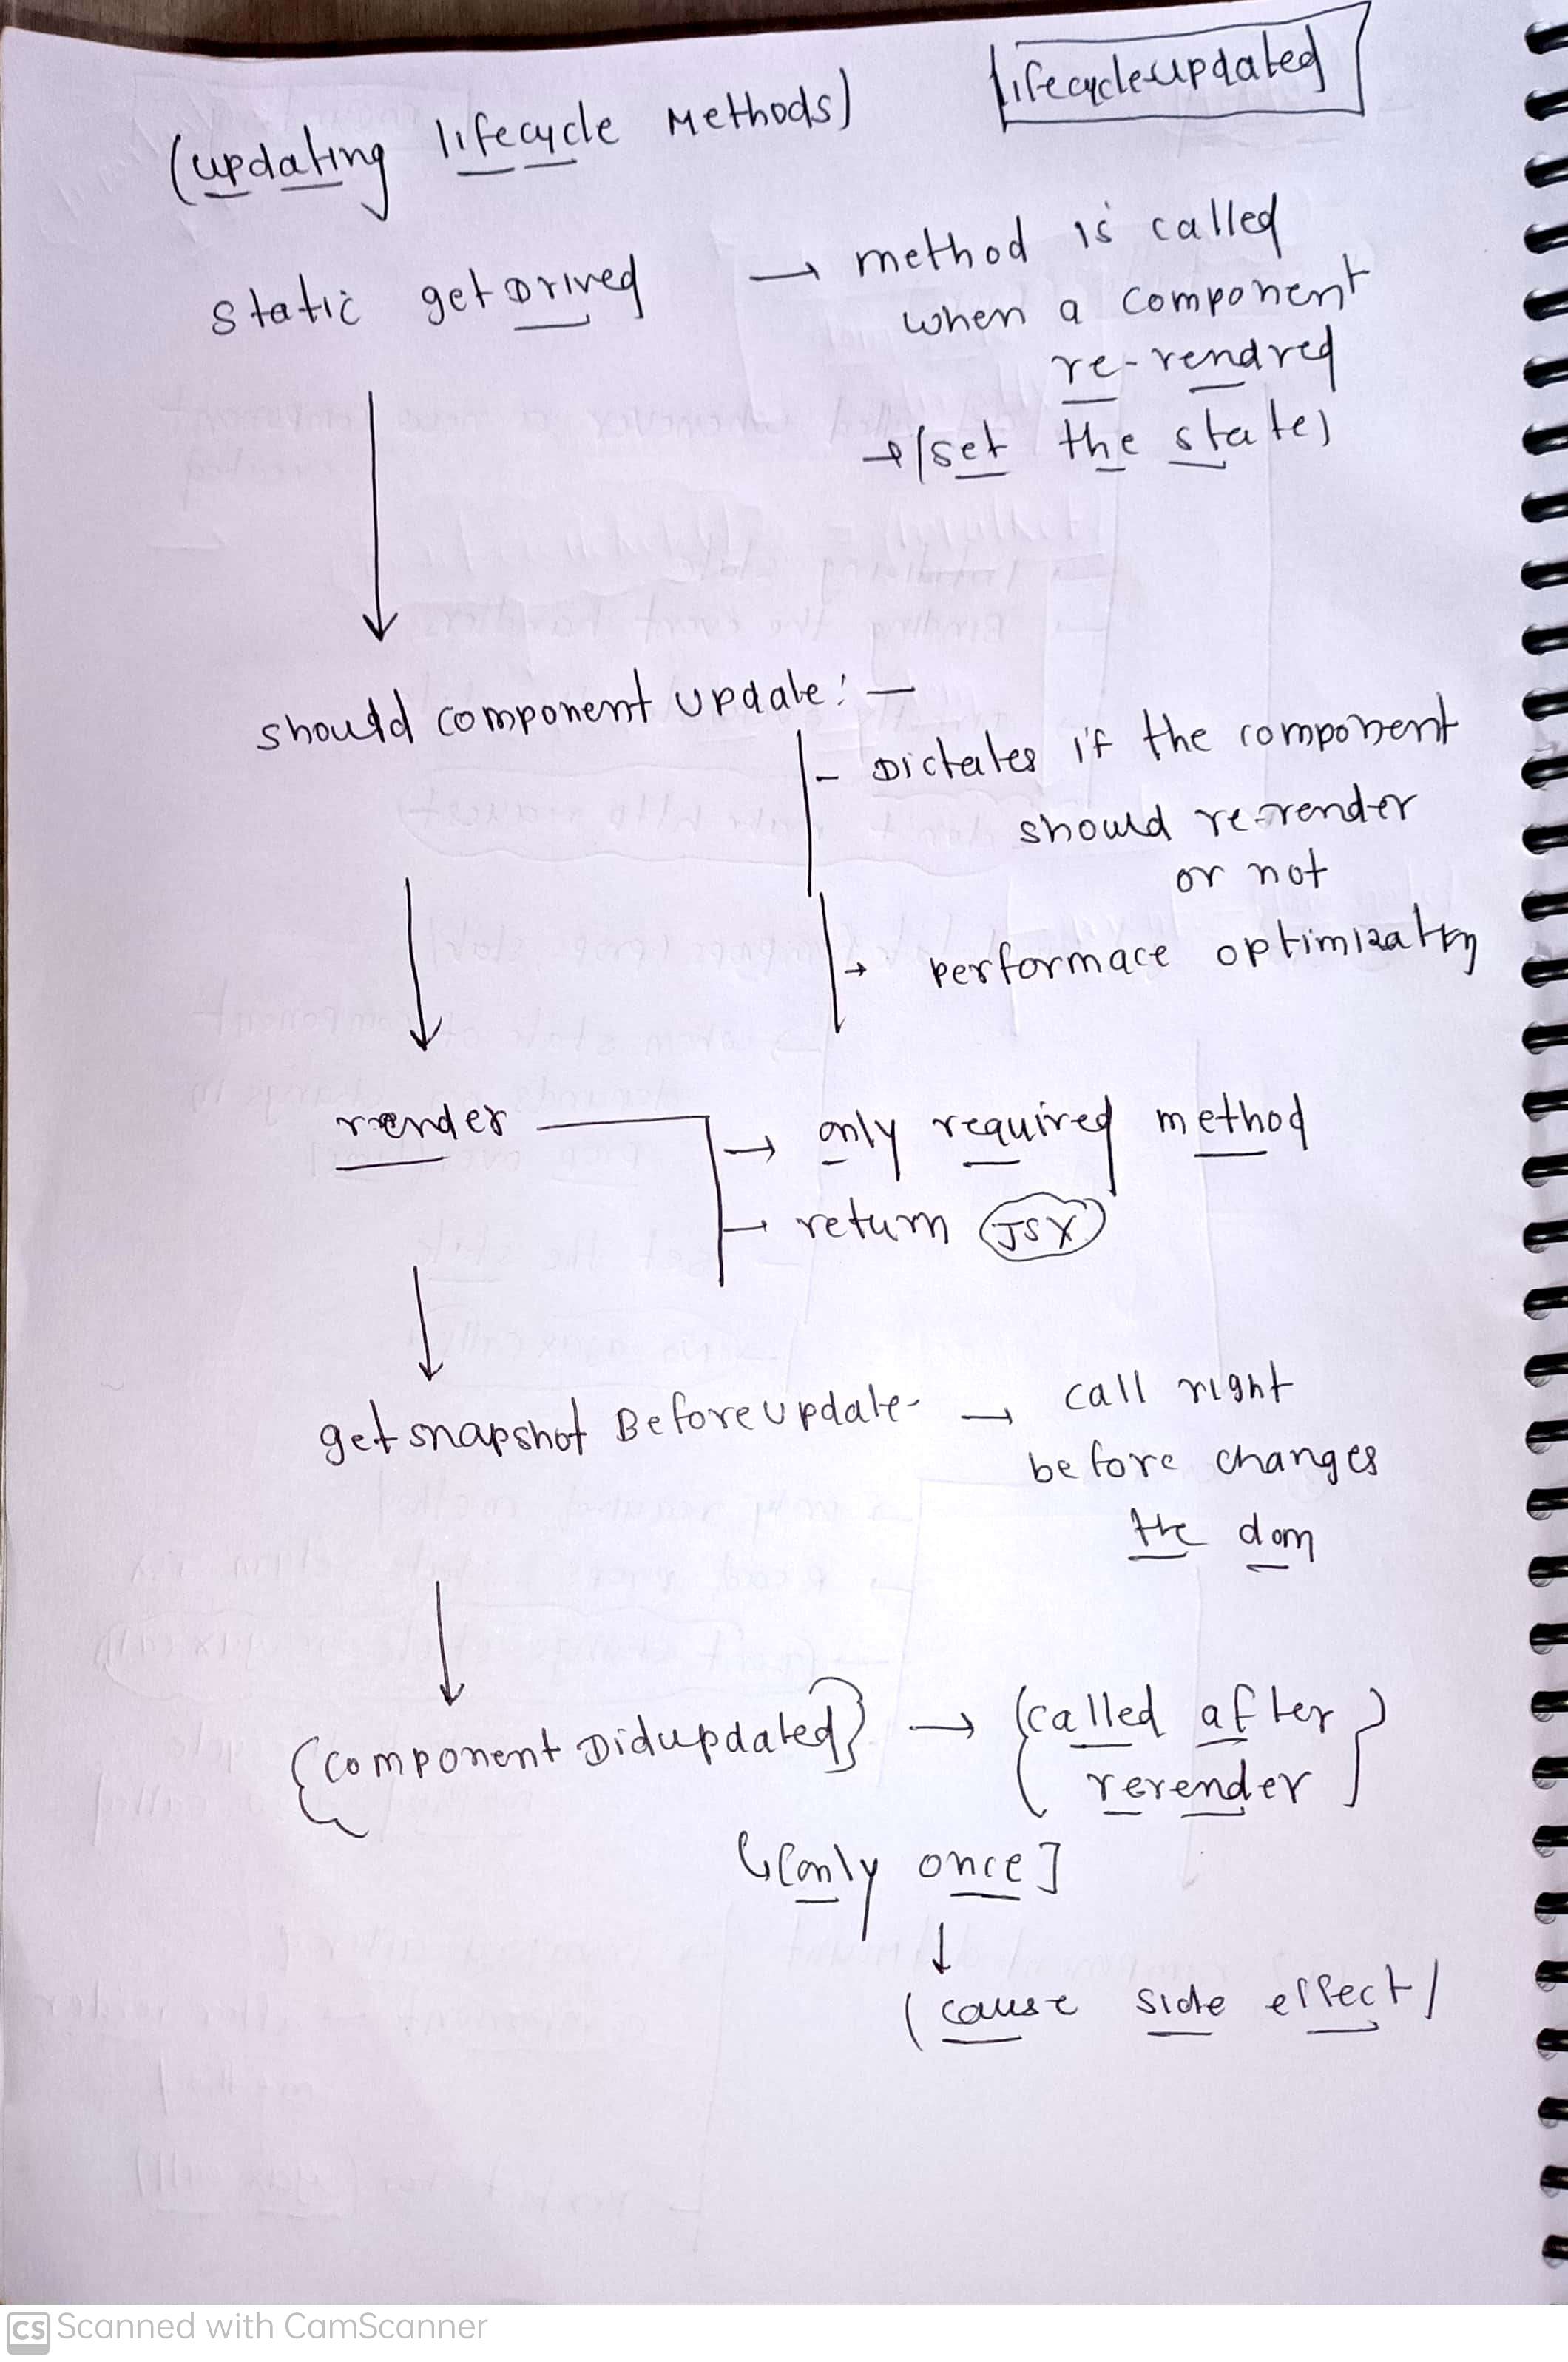 lifecycleupdated
(updating lifecycle Methods)
static getDrived → method is called
when a component
re-rendred
→ (set the state)
should component update: —
- Dictates if the component
should re-render
or not
→ performace optimization
render → only required method
→ return JSX
getsnapshot Beforeupdate → call right
before changes
the dom
{component Didupdated} → {called after
rerender}
↳ [only once]
↓
(cause side effect)
CS Scanned with CamScanner